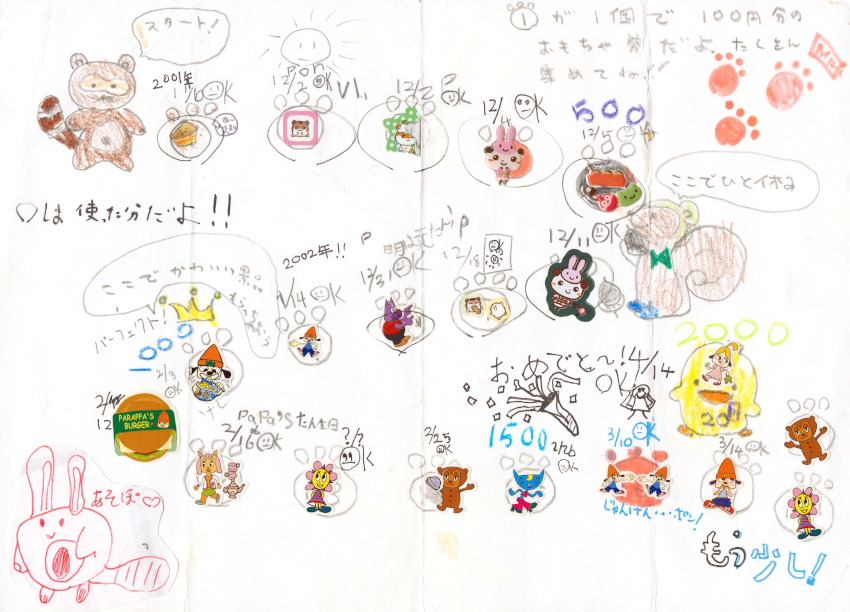 スタート!
①が1個で100円分の
おもちゃ券だよ。たくさん
集めてね!!
2001年
OK
12/2
12/2
OK
12/4 OK
500
12/5
ここでひと休み
○は使った分だよ!!
2002年!!
1/14 OK
12/31 OK
12/18
OK
12/11 OK
ここでかわいい景品
もらえちゃう
パーフェクト!
1000
2/3
OK
おめでとー! 4/14
OK
2000
20
PARAPPA'S
BURGER
PaPa's たん生日
2/16 OK
?/? OK
2/25
OK
1500
2/26
OK
3/10 OK
じゃんけん・・・ポン!
3/14 OK
あそぼ♡
もう少し!